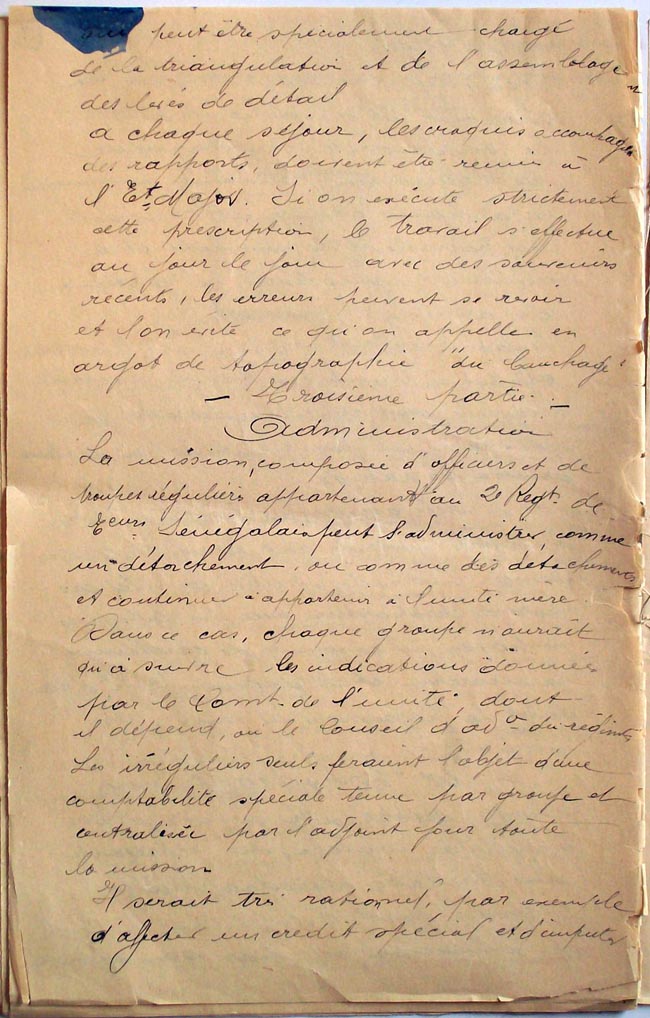 qui peut être spécialement chargé
de la triangulation et de l'assemblage
des levés de détail
a chaque séjour, les croquis accompagnés
des rapports, doivent être remis à
l'Et. Major. Si on exécute strictement
cette prescription, le travail s'effectue
au jour le jour avec des souvenirs
récents, les erreurs peuvent se revoir
et l'on évite ce qu'on appelle en
argot de topographie "du
— Troisième partie. —
Administration
La mission, composée d'officiers et de
troupes régulières appartenant au 2e Regt. de
Sénégalais peut s'administrer, comme
un détachement, ou comme des détachements
et continuer à appartenir à l'unité mère.
Dans ce cas, chaque groupe n'aurait
qu'à suivre les indications données
par le Comt de l'unité, dont
il dépend, ou le Conseil d'adon du régiment
Les irréguliers seuls feraient l'objet d'une
comptabilité spéciale tenue par groupe et
centralisée par l'adjoint pour toute
la mission
Il serait très rationnel, par exemple
d'affecter un crédit spécial et d'imputer